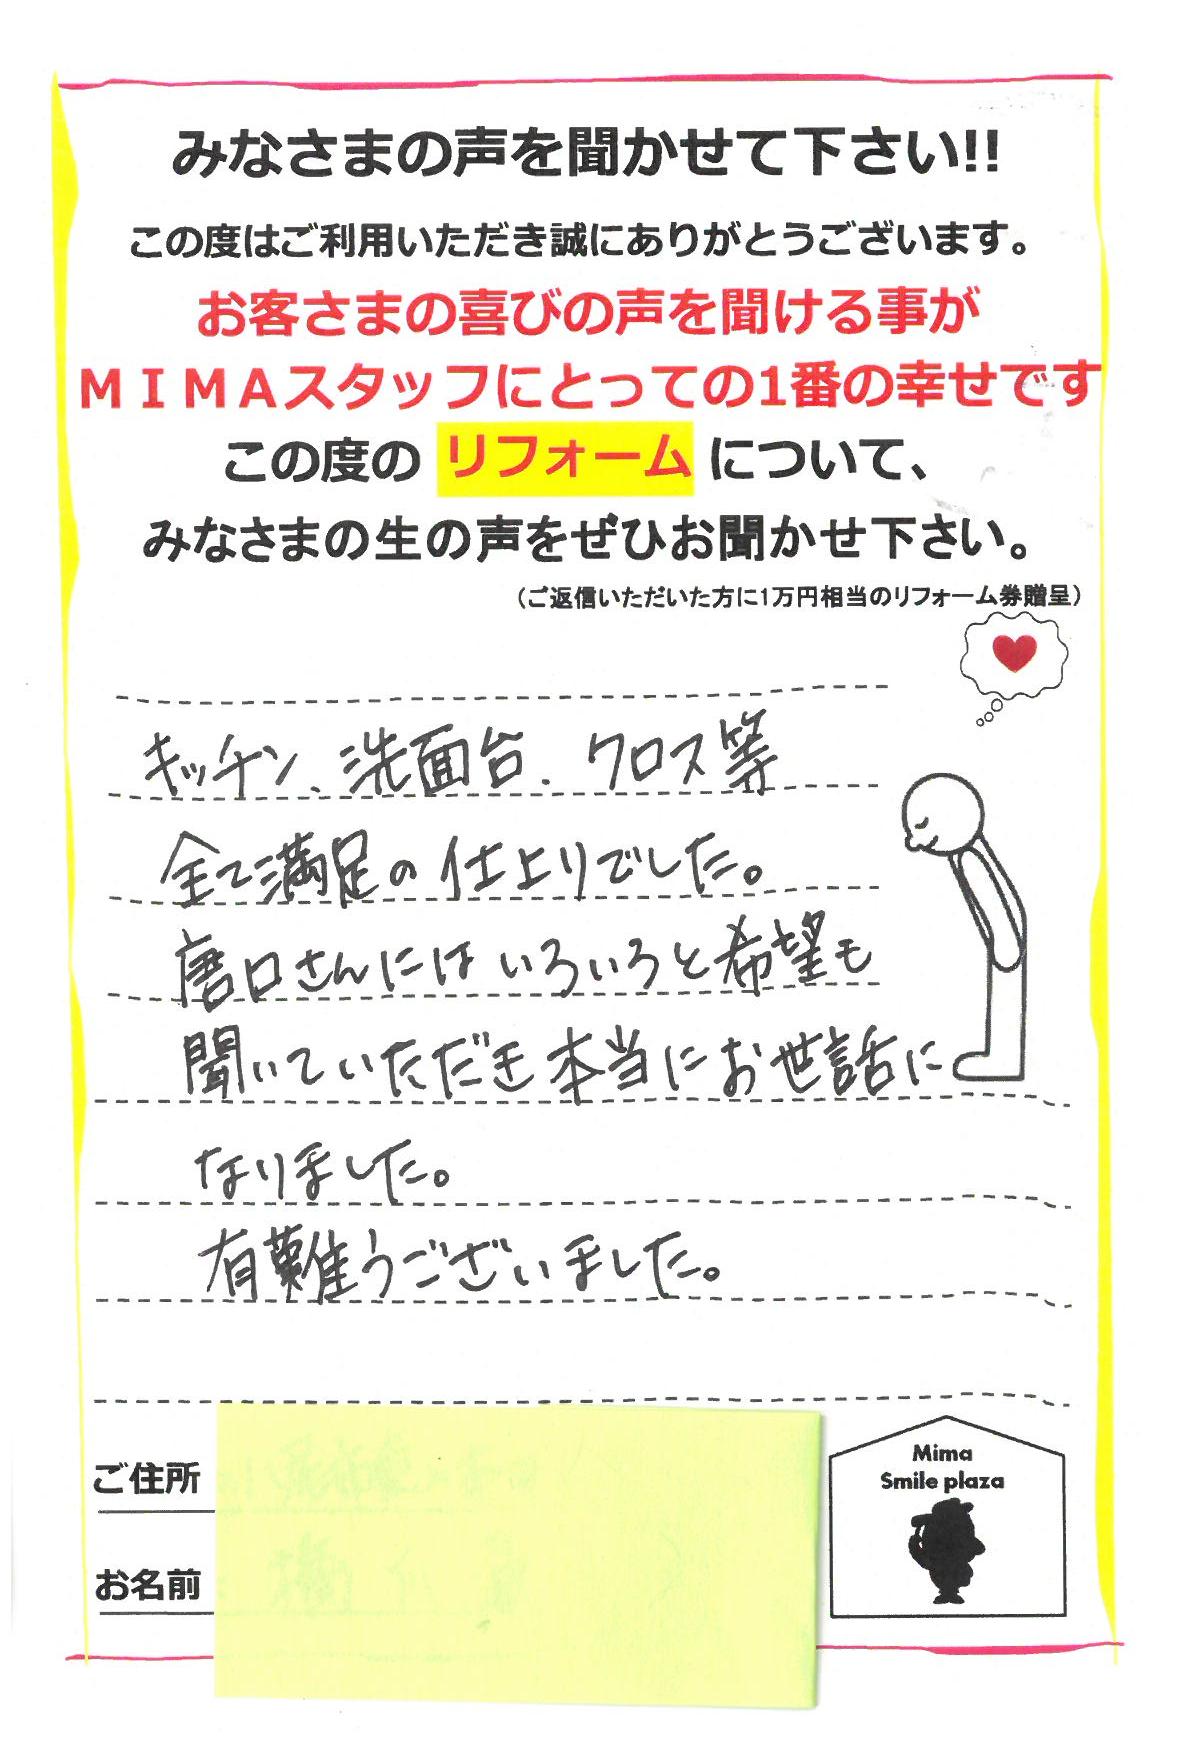 みなさまの声を聞かせて下さい!!
この度はご利用いただき誠にありがとうございます。
お客さまの喜びの声を聞ける事が
ＭＩＭＡスタッフにとっての1番の幸せです
この度の リフォーム について、
みなさまの生の声をぜひお聞かせ下さい。
（ご返信いただいた方に1万円相当のリフォーム券贈呈）
キッチン、洗面台、クロス等
全て満足の仕上りでした。
唐口さんにはいろいろと希望も
聞いていただき本当にお世話に
なりました。
有難うございました。
ご住所
お名前
Mima
Smile plaza